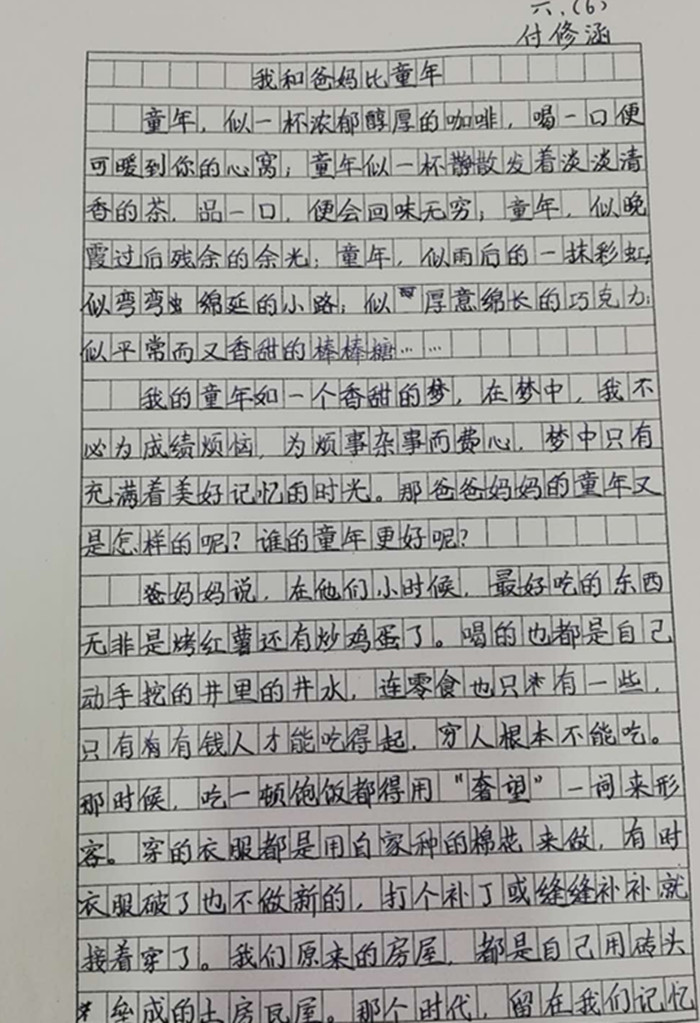 六.(6)
付修涵
我和爸妈比童年
童年，似一杯浓郁醇厚的咖啡，喝一口便
可暖到你的心窝；童年似一杯静散发着淡淡清
香的茶，品一口，便会回味无穷；童年，似晚
霞过后残余的余光；童年，似雨后的一抹彩虹；
似弯弯绵延的小路；似厚意绵长的巧克力；
似平常而又香甜的棒棒糖……
我的童年如一个香甜的梦，在梦中，我不
必为成绩烦恼，为烦事杂事而费心，梦中只有
充满着美好记忆的时光。那爸爸妈妈的童年又
是怎样的呢？谁的童年更好呢？
爸妈妈说，在他们小时候，最好吃的东西
无非是烤红薯还有炒鸡蛋了。喝的也都是自己
动手挖的井里的井水，连零食也只有一些，
只有有钱人才能吃得起，穷人根本不能吃。
那时候，吃一顿饱饭都得用“奢望”一词来形
容。穿的衣服都是用自家种的棉花来做，有时
衣服破了也不做新的，打个补丁或缝缝补补就
接着穿了。我们原来的房屋，都是自己用砖头
垒成的土房瓦屋。那个时代，留在我们记忆